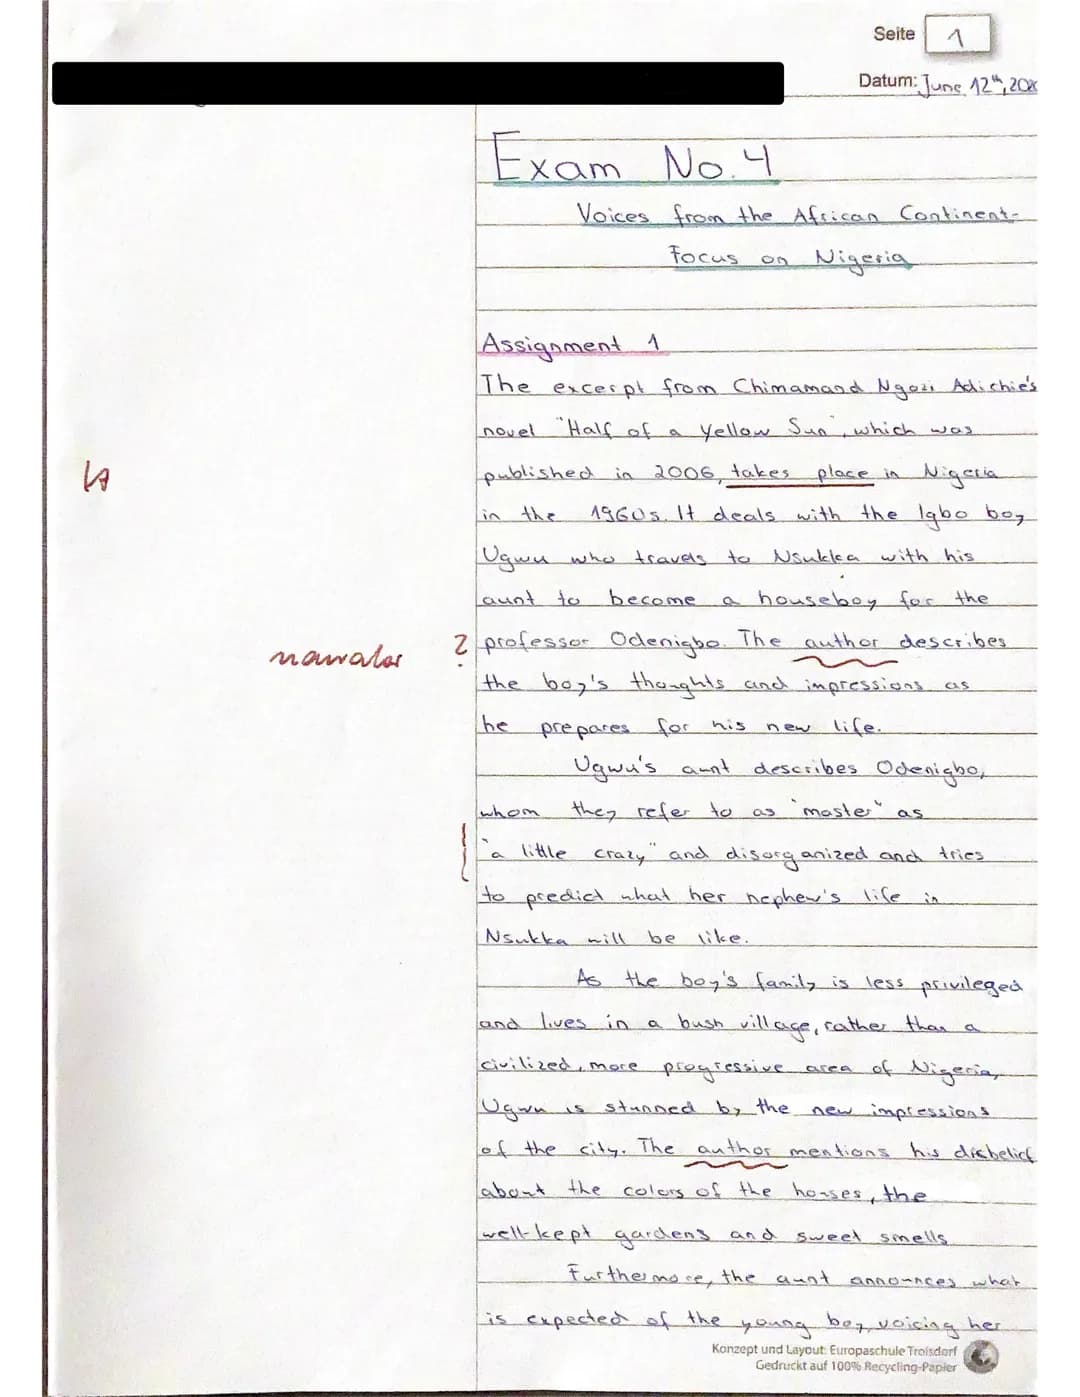 Seite 1
Datum: June 12th,
Exam No. 4
Voices from the African Continent-
Focus on Nigeria
Assignment 1
The excerpt from Chimamand Ngozi Adichie's
novel "Half of a Yellow Sun", which was
published in 2006, takes place in Nigeria
in the 1960s. It deals with the Igbo boy
Ugwu who travels to Nsukka with his
aunt to become a houseboy for the
narrator ? professor Odenigbo. The author describes
the boy's thoughts and impressions as
he prepares for his new life.
Ugwu's aunt describes Odenigbo,
whom they refer to as "master" as
"a little crazy" and disorganized and tries
to predict what her nephew's life in
Nsukka will be like.
As the boy's family is less privileged
and lives in a bush village, rather than a
civilized, more progressive area of Nigeria,
Ugwu is stunned by the new impressions
of the city. The author mentions his disbelief
about the colors of the houses, the
well-kept gardens and sweet smells
Furthermore, the aunt announces what
is expected of the young boy, voicing her
Konzept und Layout: Europaschule Troisdorf
Gedruckt auf 100% Recycling-Papier